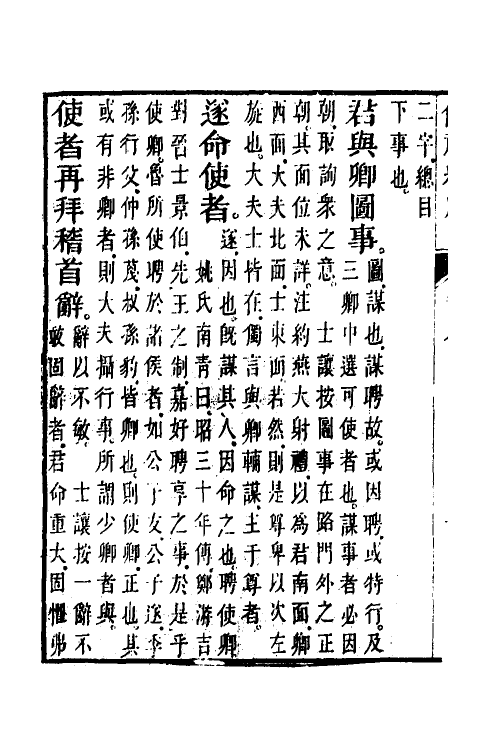 二字總目
下事也
君與卿圖事圖謀也謀聘故或因聘或特行及
三卿中選可使者也謀事者必因
朝取詢衆之意　士讓按圖事在路門外之正
朝其面位未詳注約燕大射禮以爲君南面卿
西面大夫北面士東面若然則是尊卑以次左
旋也大夫士皆在獨言與卿輔謀主于尊者
遂命使者遂因也旣謀其人因命之也聘使卿
姚氏南青曰昭三十年傳鄭游吉
對晉士景伯先王之制嘉好聘享之事於是乎
使卿魯所使聘於諸侯者如公子友公子遂季
孫行父仲孫蔑叔孫豹皆卿也則使卿正也其
或有非卿者則大夫攝行事所謂少卿者與
使者再拜稽首辭辭以不敏　士讓按一辭不
敢固辭者君命重大固懼弗